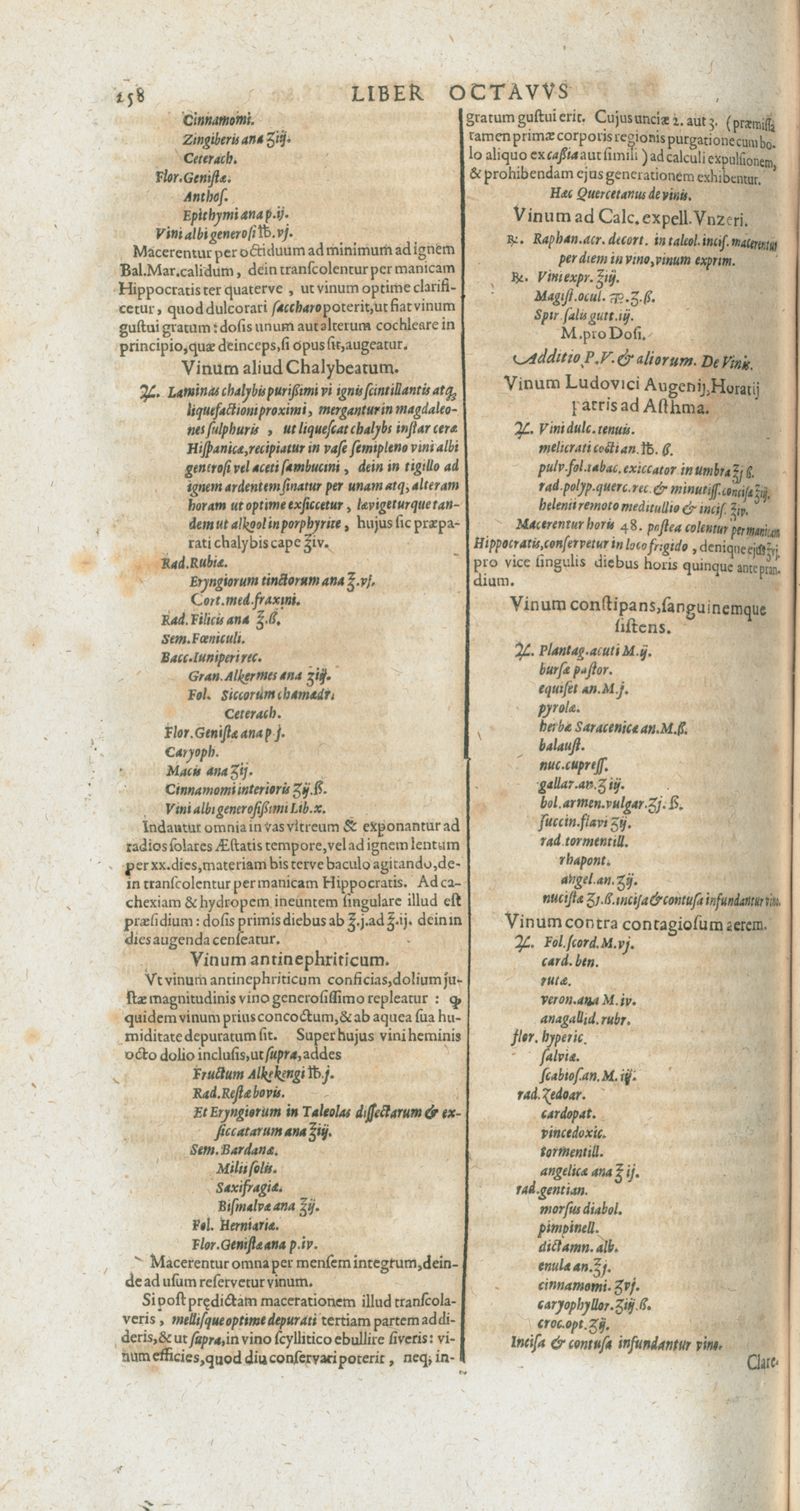 158 LIBER OCTAVVS
Cinnamomi.
Zingiberis ana ʒiij.
Ceterach.
Flor. Genistæ.
Anthos.
Epithymi ana p. ij.
Vini albi generosi ℔. vj.
Macerentur per octiduum ad minimum ad ignem
Bal. Mar. calidum, dein transcolentur per manicam
Hippocratis ter quaterve, ut vinum optime clarifi-
cetur, quod dulcorari saccharo poterit, ut fiat vinum
gustui gratum: dosis unum aut alterum cochleare in
principio, quæ deinceps, si opus sit, augeatur.
Vinum aliud Chalybeatum.
℞. Laminas chalybis purißimi vi ignis scintillantis atq;
liquefactioni proximi, mergantur in magdaleo-
nes sulphuris, ut liquescat chalybs instar ceræ
Hispanicæ, recipiatur in vase semipleno vini albi
generosi vel aceti sambucini, dein in tigillo ad
ignem ardentem sinatur per unam atq; alteram
horam ut optime exsiccetur, lævigeturque tan-
dem ut alkool in porphyrite, hujus sic præpa-
rati chalybis cape ℥iv.
Rad. Rubiæ.
Eryngiorum tinctorum ana ℥. vj.
Cort. med. fraxini.
Rad. Filicis ana ℥. ß.
Sem. Fœniculi.
Bacc. Iuniperi rec.
Gran. Alkermes ana ʒiij.
Fol. Siccorum chamædr.
Ceterach.
Flor. Genistæ ana p j.
Caryoph.
Macis ana ʒij.
Cinnamomi interioris ʒij. ß.
Vini albi generosißimi Lib. x.
Indantur omnia in vas vitreum & exponantur ad
radios solares Æstatis tempore, vel ad ignem lentum
per xx. dies, materiam bis terve baculo agitando, de-
in transcolentur per manicam Hippocratis. Ad ca-
chexiam & hydropem ineuntem singulare illud est
præsidium: dosis primis diebus ab ℥. j. ad ℥. ij. dein in
dies augenda censeatur.
Vinum antinephriticum.
Vt vinum antinephriticum conficias, dolium ju-
stæ magnitudinis vino generosissimo repleatur : ꝙ
quidem vinum prius concoctum, & ab aquea sua hu-
miditate depuratum sit. Super hujus vini heminis
octo dolio inclusis, ut supra, addes
Fructum Alkekengi ℔. j.
Rad. Restæ bovis.
Et Eryngiorum in Taleolas dissectarum & ex-
siccatarum ana ℥iij.
Sem. Bardanæ.
Milii solis.
Saxifragiæ.
Bismalvæ ana ℥ij.
Fol. Herniariæ.
Flor. Genistæ ana p. iv.
Macerentur omna per mensem integrum, dein-
de ad usum reservetur vinum.
Si post prędictam macerationem illud transcola-
veris, mellisque optime depurati tertiam partem addi-
deris, & ut supra, in vino scyllitico ebullire siveris: vi-
num efficies, quod diu conservari poterit, neq; in-
gratum gustui erit. Cujus unciæ 2. aut 3. (præmissa
tamen primæ corporis regionis purgatione cum bo-
lo aliquo ex caßia aut simili) ad calculi expulsionem,
& prohibendam ejus generationem exhibentur.
Hæc Quercetanus de vinis.
Vinum ad Calc. expell. Vnzeri.
℞. Raphan. acr. decort. in taleol. incis. macerentur
per diem in vino, vinum exprim.
℞. Vini expr. ℥iij.
Magist. ocul. ℥. ß.
Spir salis gutt. iij.
M. pro Dosi.
Additio P. V. & aliorum. De Vinis.
Vinum Ludovici Augenij, Horatij
patris ad Asthma.
℞. Vini dulc. tenuis.
melicrati cocti an. ℔. ß.
pulv. fol. tabac. exiccator in umbra ℥j ß.
rad. polyp. querc. rec. & minutiss. concisæ ℥ij.
helenii remoto meditullio & incis. ℥iv.
Macerentur horis 48. postea colentur per manicam
Hippocratis, conservetur in loco frigido, denique ejus ℥vj.
pro vice singulis diebus horis quinque ante pran-
dium.
Vinum constipans, sanguinemque
sistens.
℞. Plantag. acuti M. ij.
bursæ pastor.
equiset an. M. j.
pyrolæ.
herbæ Saracenicæ an. M. ß.
balaust.
nuc. cupress.
gallar. an. ʒ iij.
bol. armen. vulgar. ʒj. ß.
succin. flavi ʒij.
rad tormentill.
rhapont.
angel. an. ʒij.
nucistæ ʒj. ß. incisa & contusa infundantur vino.
Vinum contra contagiosum aerem.
℞. Fol. scord. M. vj.
card. ben.
rutæ.
veron. ana M. iv.
anagallid. rubr.
flor. hyperic.
salviæ.
scabios. an. M. iij.
rad. zedoar.
cardopat.
vincedoxic.
tormentill.
angelicæ ana ℥ ij.
rad. gentian.
morsus diabol.
pimpinell.
dictamn. alb.
enulæ an. ℥j.
cinnamomi. ʒvj.
caryophyllor. ʒiij. ß.
croc. opt. ʒij.
Incisa & contusa infundantur vino.
Clare-